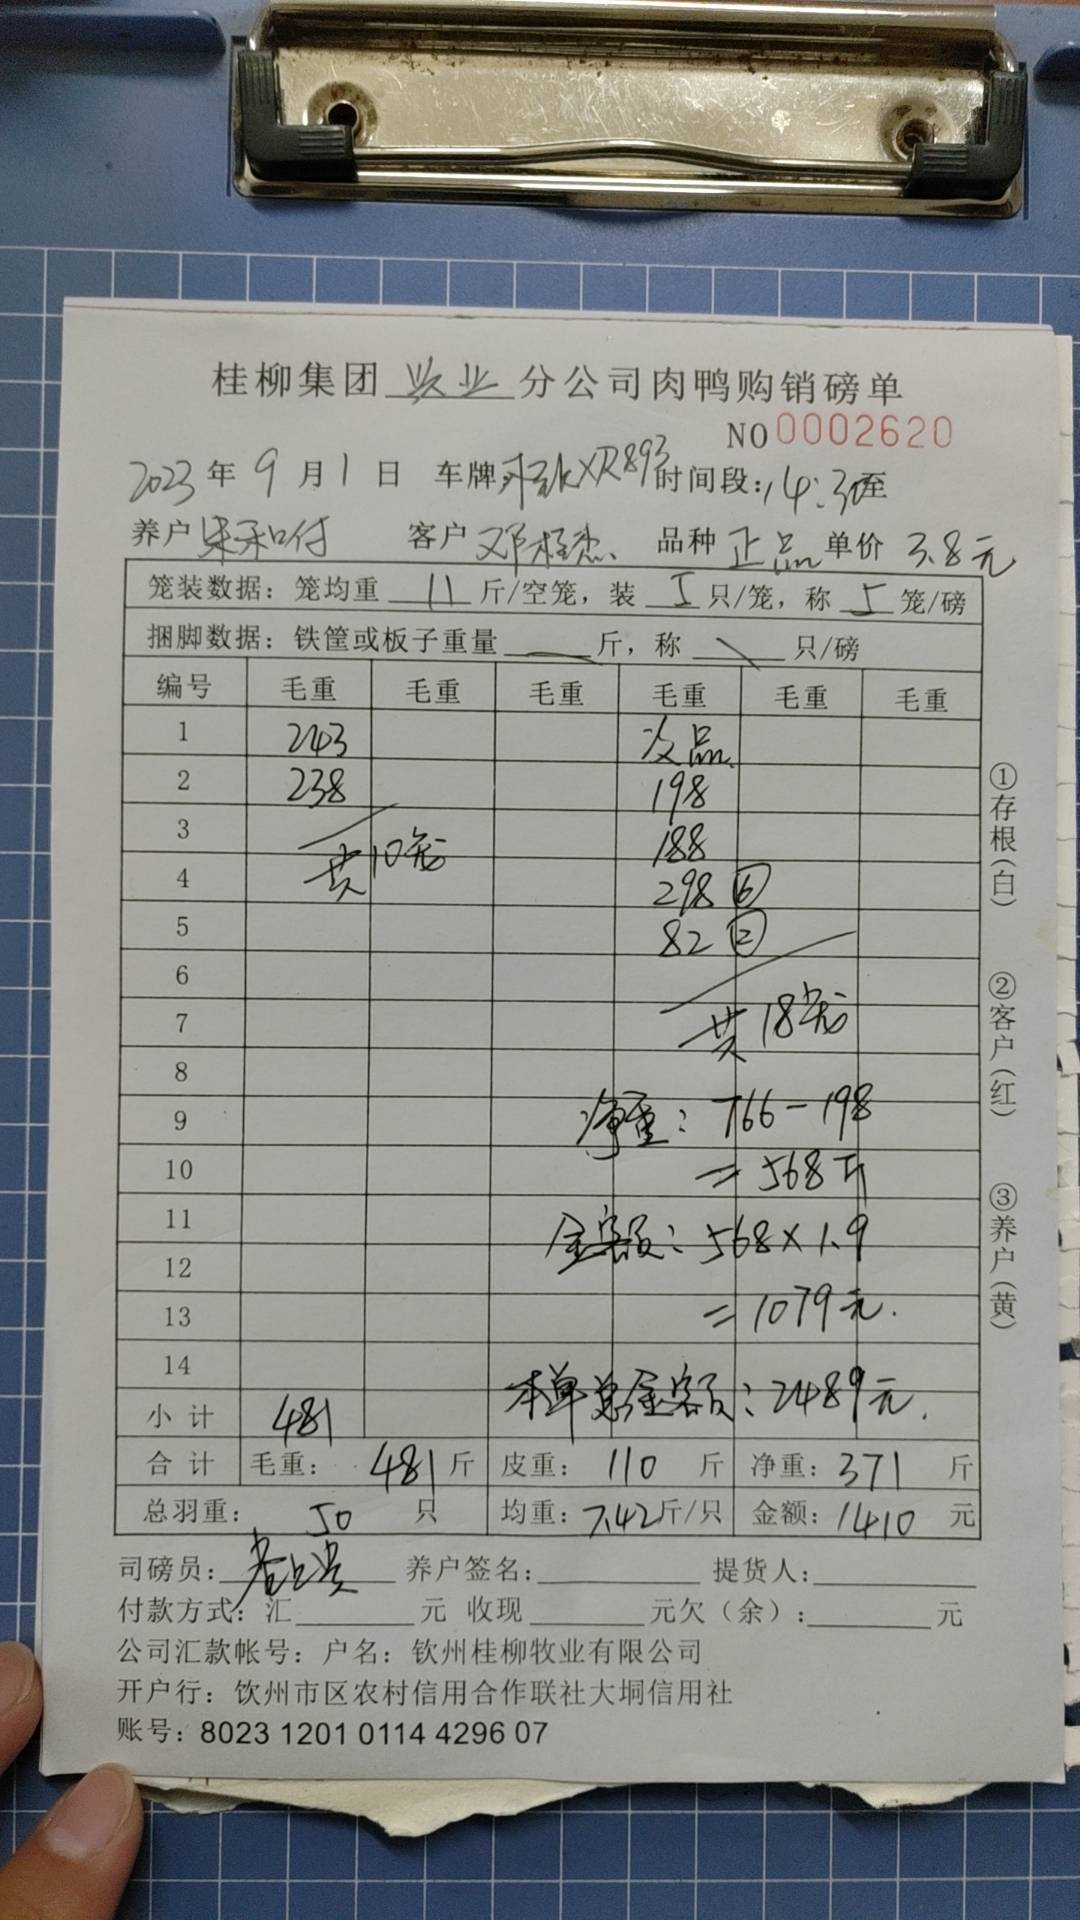 桂柳集团兴业分公司肉鸭购销磅单
NO 0002620
2023年9月1日 车牌XR893时间段:14:30至
养户朱和付 客户邓桂杰 品种正品单价3.8元
笼装数据:笼均重11斤/空笼,装5只/笼,称5笼/磅
捆脚数据:铁筐或板子重量 斤,称 只/磅
编号 毛重 毛重 毛重 毛重 毛重 毛重
1 243 次品
2 238 198
3 188
共10笼
4 298 ⑥
5 82 ②
6
7 共18笼
8
9 净重:766-198
10 =568斤
11 金额:568×1.9
12
13 =1079元.
14 本单总金额:2489元.
小计 481
合计 毛重:481斤 皮重:110斤 净重:371斤
总羽重:50只 均重:7.42斤/只 金额:1410元
司磅员: 养户签名: 提货人:
付款方式:汇 元 收现 元欠(余): 元
公司汇款帐号:户名:钦州桂柳牧业有限公司
开户行:钦州市区农村信用合作联社大垌信用社
账号:8023 1201 0114 4296 07
①存根(白)
②客户(红)
③养户(黄)